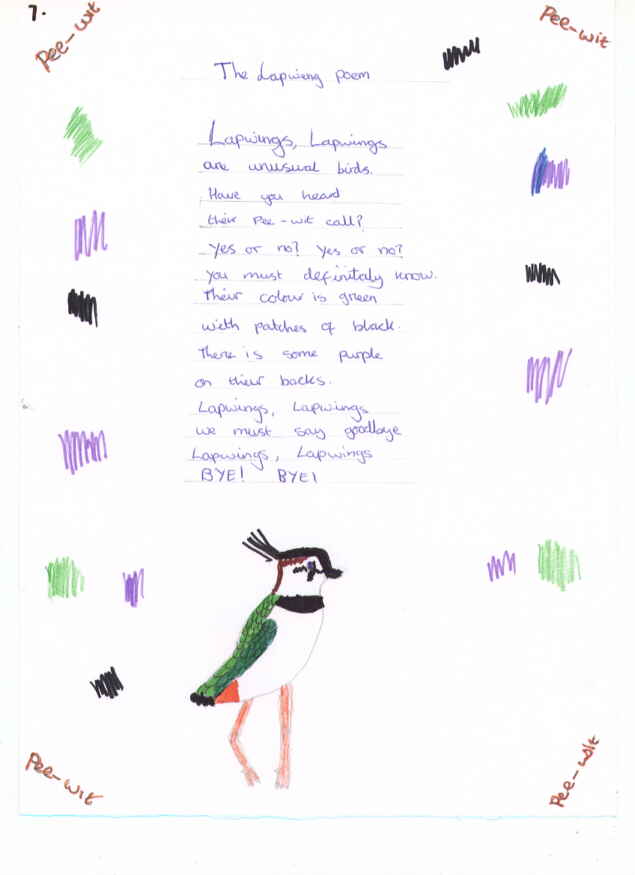 7.
Pee-wit
Pee-wit
The Lapwing poem
Lapwings, Lapwings
are unusual birds.
Have you heard
their Pee-wit call?
Yes or no? Yes or no?
you must definitaly know.
Their colour is green
with patches of black.
There is some purple
on their backs.
Lapwings, Lapwings
we must say goodbye
Lapwings, Lapwings
BYE! BYE!
Pee-wit
Pee-wit